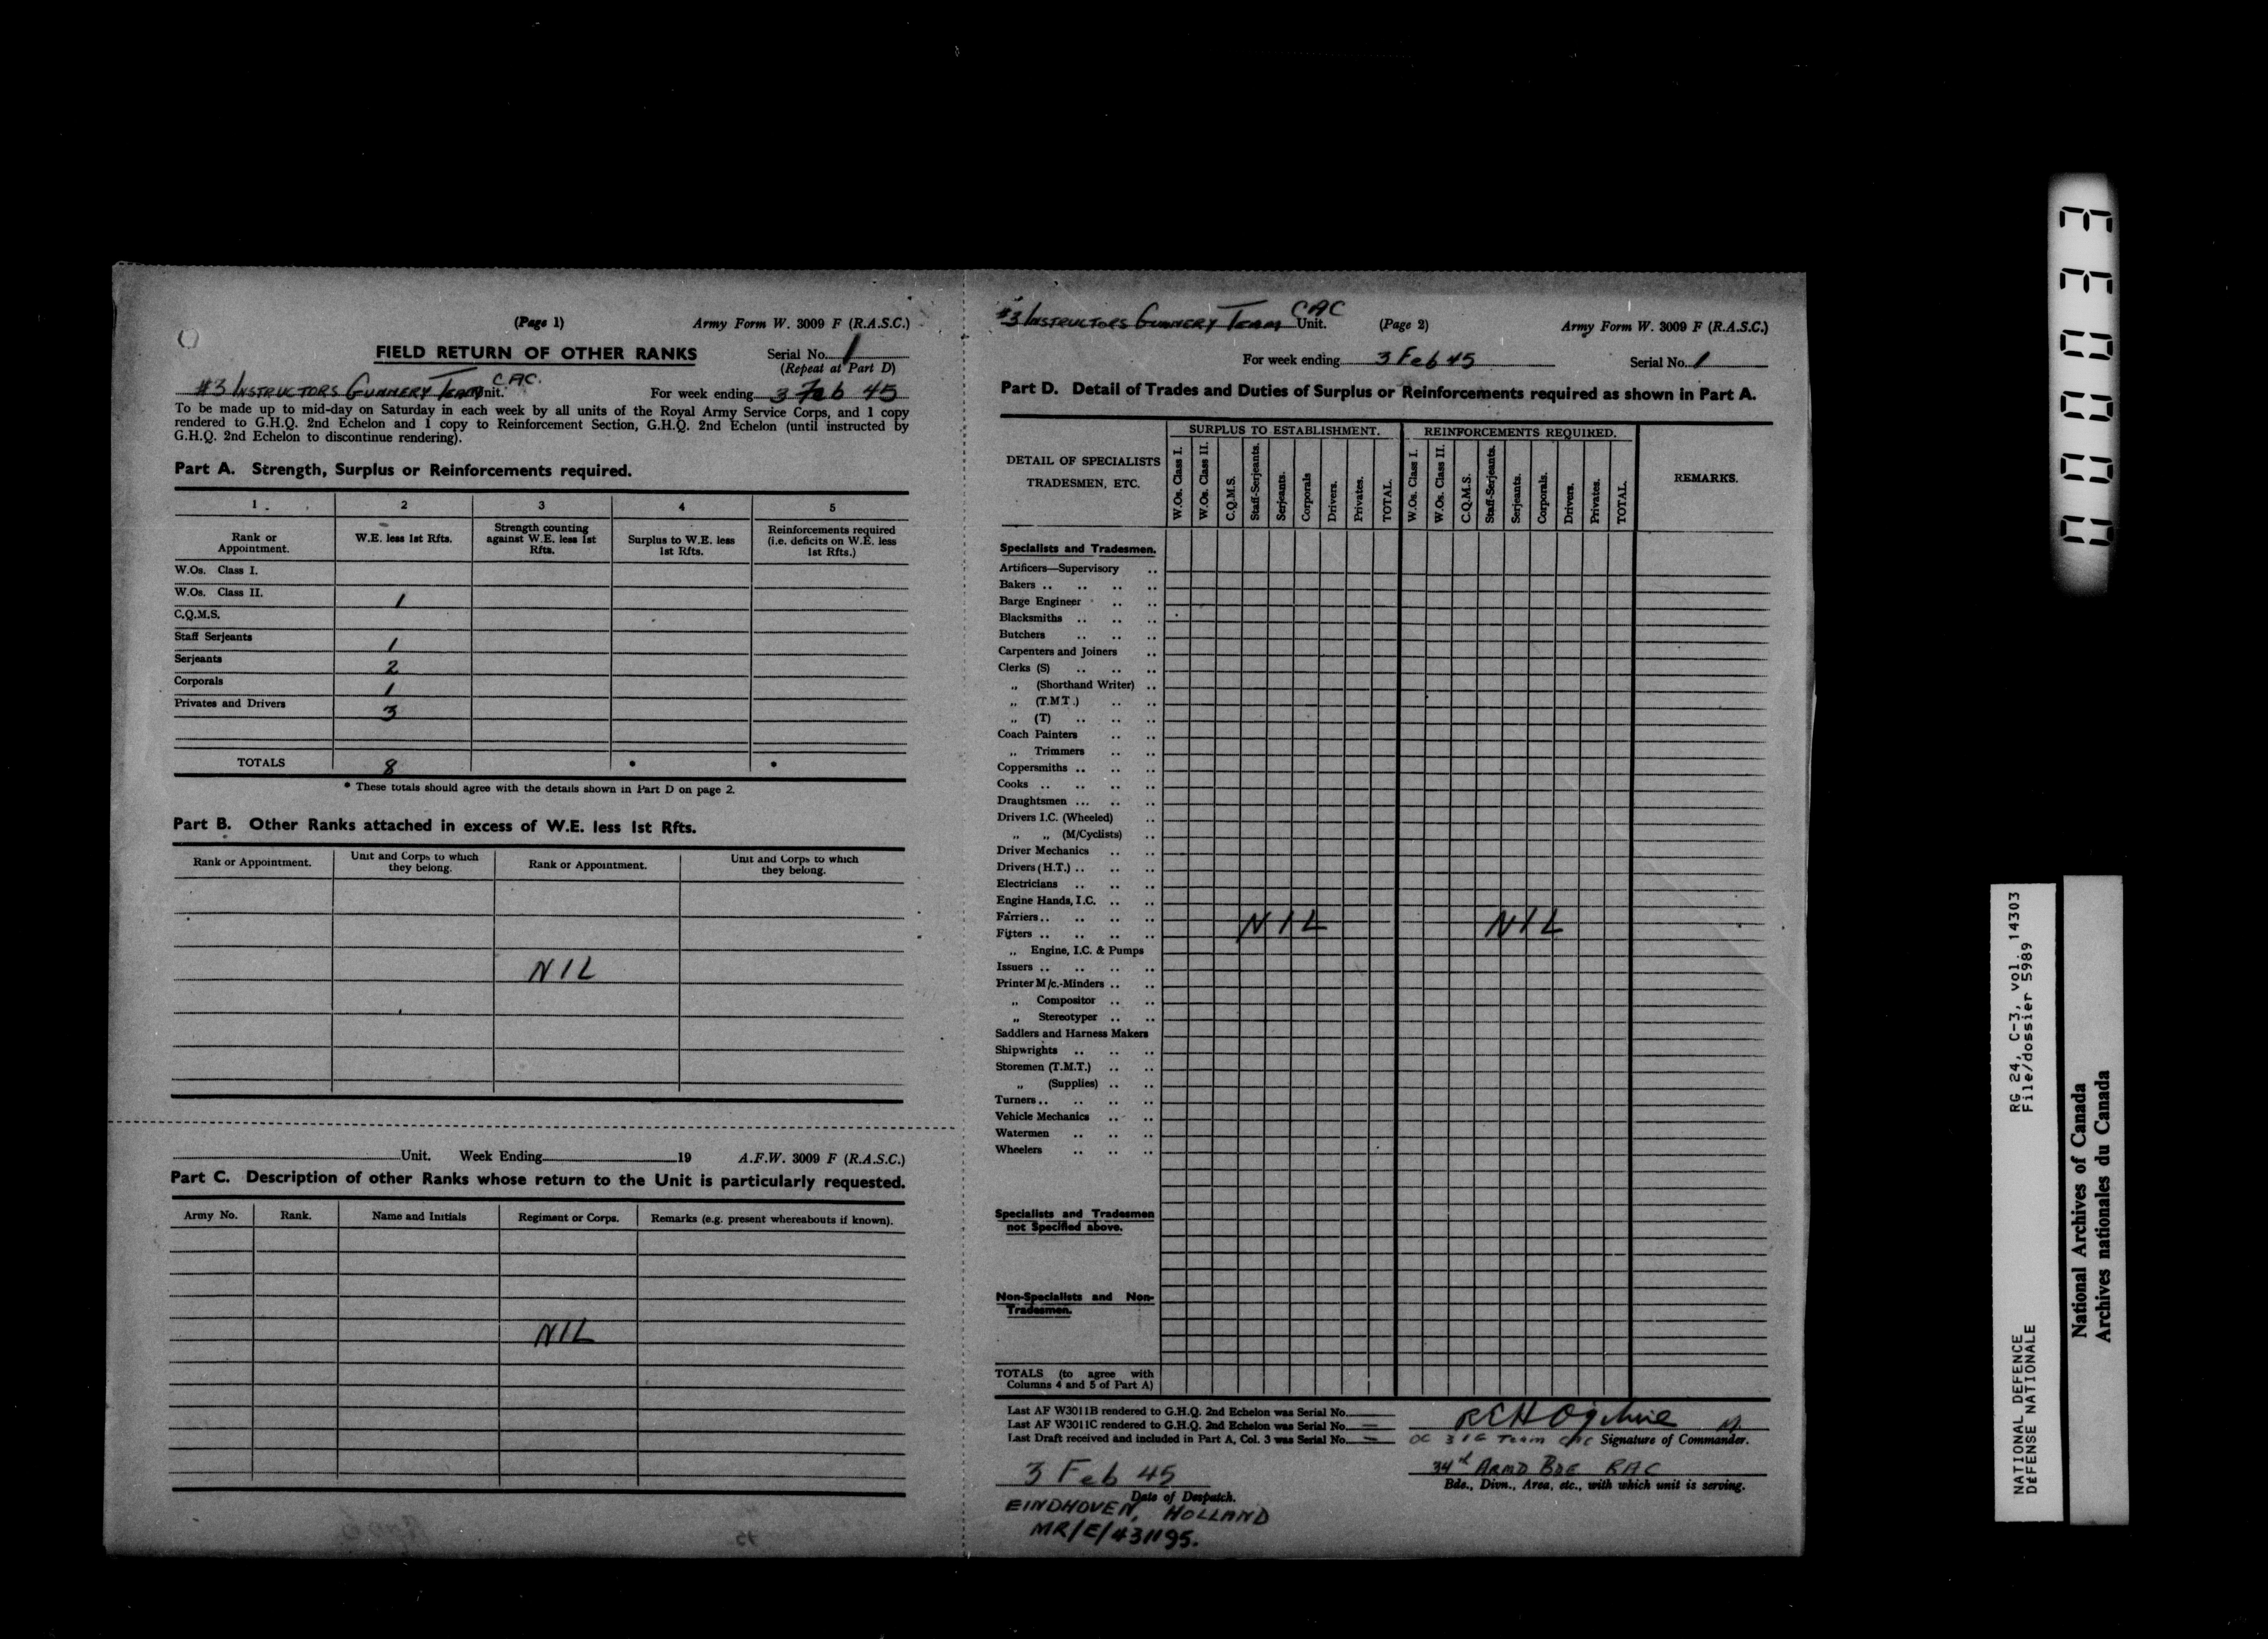 (Page 1)
Army Form W. 3009 F (R.A.S.C.)
FIELD RETURN OF OTHER RANKS
Serial No. 1
(Repeat at Part D)
#3 INSTRUCTORS GUNNERY TEAM C.A.C. Unit.
For week ending 3 Feb 45
To be made up to mid-day on Saturday in each week by all units of the Royal Army Service Corps, and 1 copy
rendered to G.H.Q. 2nd Echelon and 1 copy to Reinforcement Section, G.H.Q. 2nd Echelon (until instructed by
G.H.Q. 2nd Echelon to discontinue rendering).
Part A. Strength, Surplus or Reinforcements required.
1 2 3 4 5
Rank or Appointment. W.E. less 1st Rfts. Strength counting against W.E. less 1st Rfts. Surplus to W.E. less 1st Rfts. Reinforcements required (i.e. deficits on W.E. less 1st Rfts.)
W.Os. Class I.
W.Os. Class II. 1
C.Q.M.S.
Staff Serjeants 1
Serjeants 2
Corporals 1
Privates and Drivers 3
TOTALS 8 * *
* These totals should agree with the details shown in Part D on page 2.
Part B. Other Ranks attached in excess of W.E. less 1st Rfts.
Rank or Appointment. Unit and Corps to which they belong. Rank or Appointment. Unit and Corps to which they belong.
NIL
Unit. Week Ending 19 A.F.W. 3009 F (R.A.S.C.)
Part C. Description of other Ranks whose return to the Unit is particularly requested.
Army No. Rank. Name and Initials Regiment or Corps. Remarks (e.g. present whereabouts if known).
NIL
#3 INSTRUCTORS GUNNERY TEAM CAC Unit.
(Page 2)
Army Form W. 3009 F (R.A.S.C.)
For week ending 3 Feb 45
Serial No. 1
Part D. Detail of Trades and Duties of Surplus or Reinforcements required as shown in Part A.
DETAIL OF SPECIALISTS TRADESMEN, ETC.
SURPLUS TO ESTABLISHMENT.
W.Os. Class I. W.Os. Class II. C.Q.M.S. Staff-Serjeants. Serjeants. Corporals Drivers. Privates. TOTAL.
REINFORCEMENTS REQUIRED.
W.Os. Class I. W.Os. Class II. C.Q.M.S. Staff-Serjeants. Serjeants. Corporals. Drivers. Privates. TOTAL.
REMARKS.
Specialists and Tradesmen.
Artificers—Supervisory
Bakers
Barge Engineer
Blacksmiths
Butchers
Carpenters and Joiners
Clerks (S)
„ (Shorthand Writer)
„ (T.M.T.)
„ (T)
Coach Painters
„ Trimmers
Coppersmiths
Cooks
Draughtsmen
Drivers I.C. (Wheeled)
„ „ (M/Cyclists)
Driver Mechanics
Drivers (H.T.)
Electricians
Engine Hands, I.C.
Farriers
Fitters NIL NIL
„ Engine, I.C. & Pumps
Issuers
Printer M/c.-Minders
„ Compositor
„ Stereotyper
Saddlers and Harness Makers
Shipwrights
Storemen (T.M.T.)
„ (Supplies)
Turners
Vehicle Mechanics
Watermen
Wheelers
Specialists and Tradesmen
not Specified above.
Non-Specialists and Non-
Tradesmen.
TOTALS (to agree with
Columns 4 and 5 of Part A)
Last AF W3011B rendered to G.H.Q. 2nd Echelon was Serial No.
Last AF W3011C rendered to G.H.Q. 2nd Echelon was Serial No. —
Last Draft received and included in Part A, Col. 3 was Serial No. —
RCH Ogilvie
OC 3 IG Team CAC Signature of Commander.
3 Feb 45
Date of Despatch.
34th ARMD BDE RAC
Bde., Divn., Area, etc., with which unit is serving.
EINDHOVEN, HOLLAND
MR/E/431195.
00003
RG 24, C-3, vol. 14303
File/dossier 5989
NATIONAL DEFENCE
DÉFENSE NATIONALE
National Archives of Canada
Archives nationales du Canada